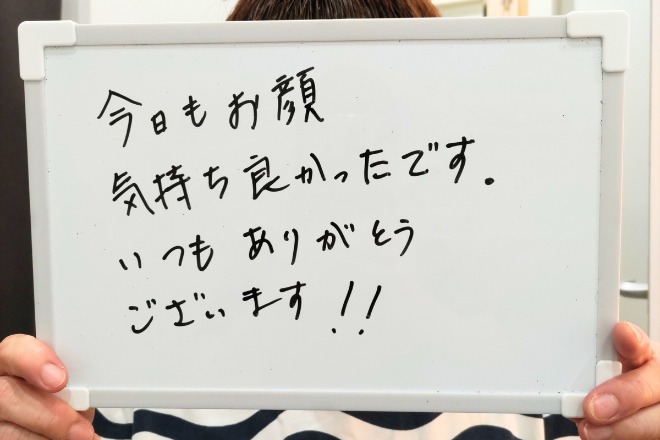 今日もお顔
気持ち良かったです。
いつもありがとう
ございます!!